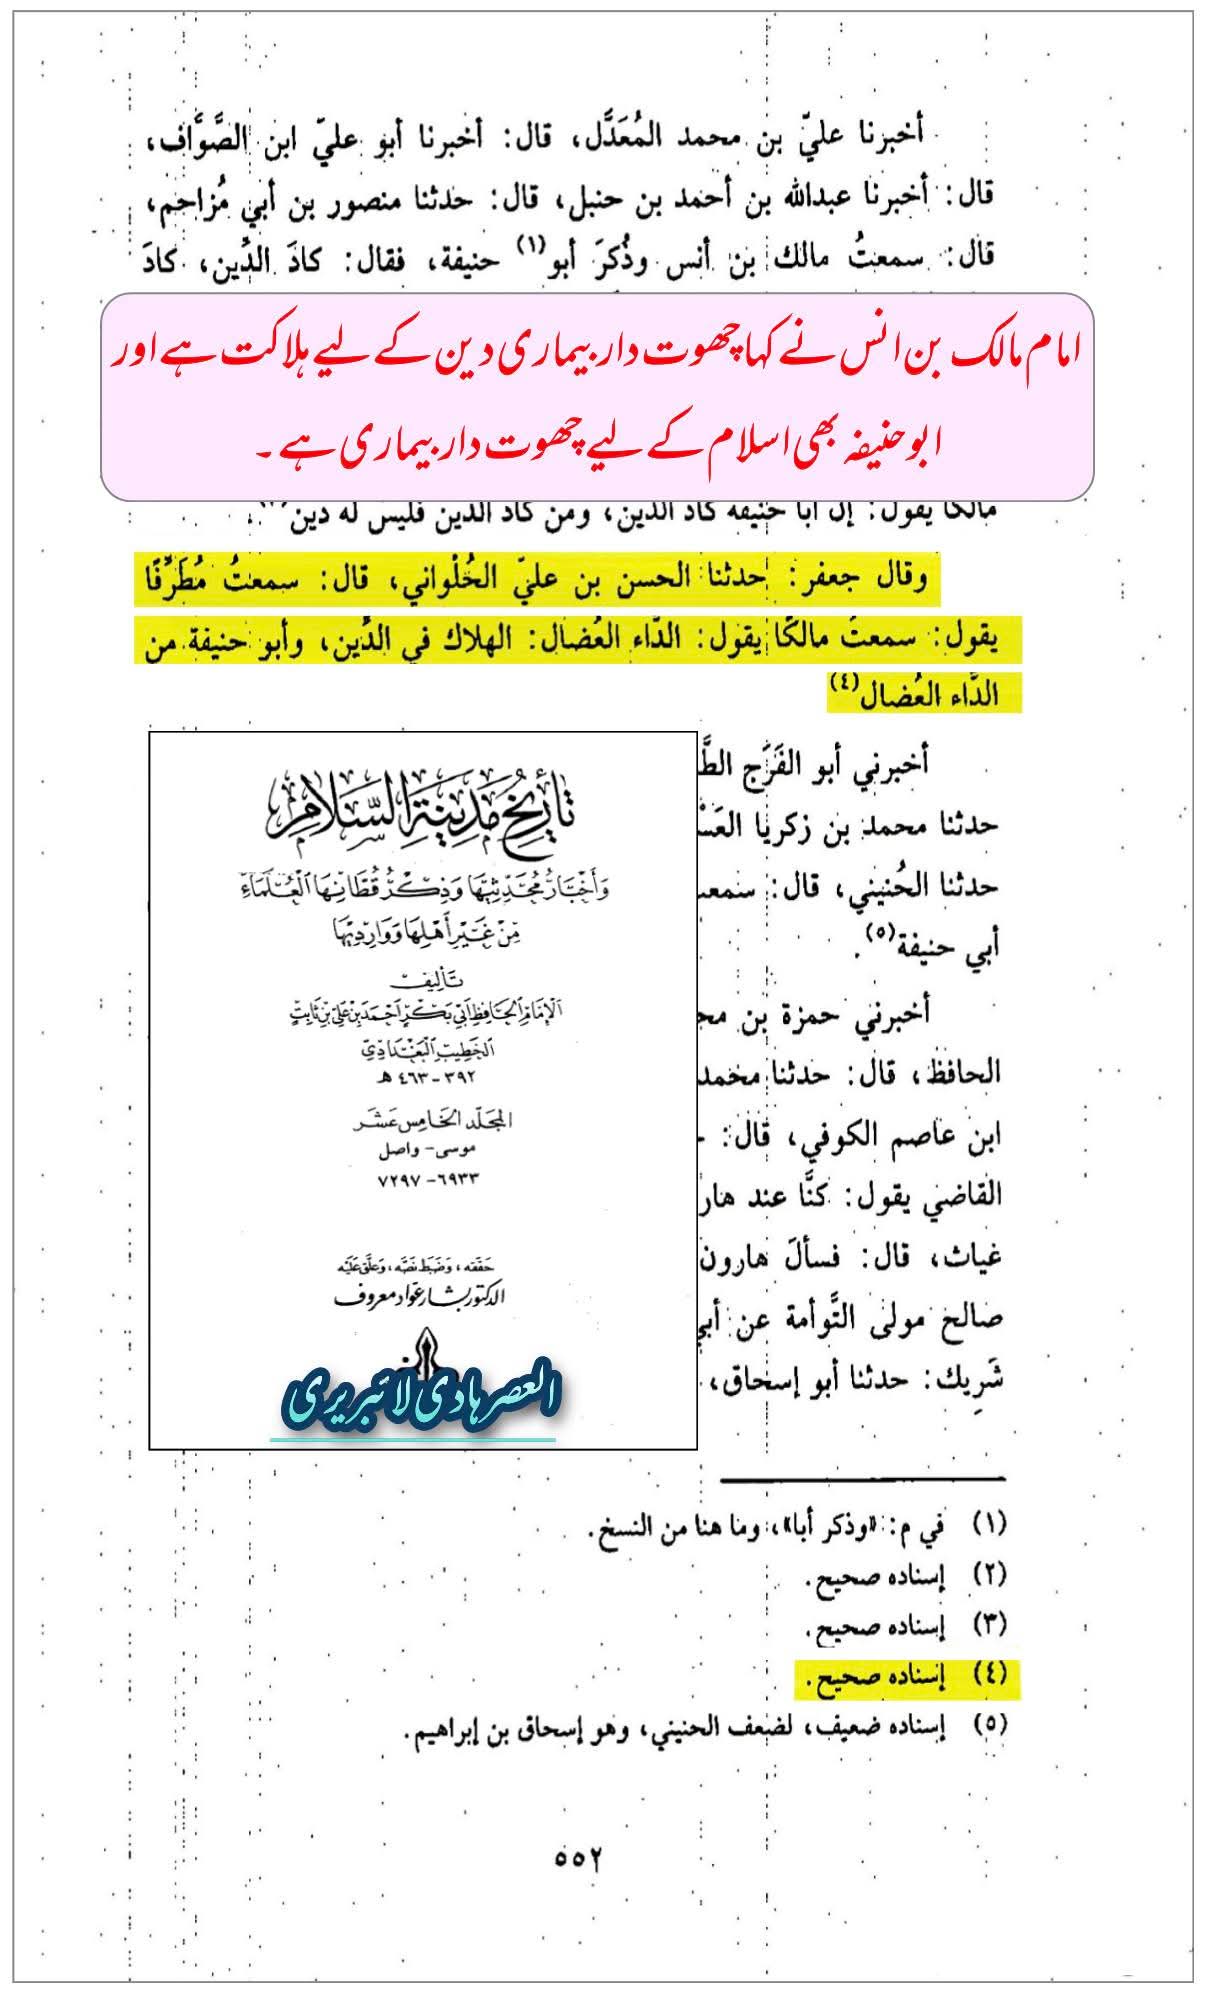 أخبرنا عليّ بن محمد المُعَدَّل، قال: أخبرنا أبو عليّ ابن الصَّوَّاف،
قال: أخبرنا عبدالله بن أحمد بن حنبل، قال: حدثنا منصور بن أبي مُزاحم،
قال: سمعتُ مالك بن أنس وذُكرَ أبو(١) حنيفة، فقال: كادَ الدِّين، كادَ
امام مالک بن انس نے کہا چھوت دار بیماری دین کے لیے ہلاکت ہے اور
ابو حنیفہ بھی اسلام کے لیے چھوت دار بیماری ہے ۔
مالكًا يقول: إن أبا حنيفة كاد الدين، ومن كاد الدين فليس له دين
وقال جعفر: حدثنا الحسن بن عليّ الحُلْواني، قال: سمعتُ مُطَرِّفًا
يقول: سمعتُ مالكًا يقول: الدَّاء العُضال: الهلاك في الدِّين، وأبو حنيفة من
الدَّاء العُضال(٤)
أخبرني أبو الفَرَج
حدثنا محمد بن زكريا
حدثنا الحُنيني، قال:
أبي حنيفة(٥).
أخبرني حمزة بن
الحافظ، قال: حدثنا
ابن عاصم الكوفي، قال:
القاضي يقول: كنَّا عند
غياث، قال: فسألَ هارون
صالح مولى التَّوأمة عن
شَرِيك: حدثنا أبو إسحاق،
تاريخ مدينة السلام
وأخبار محدثيها وذكر قطانها العلماء
من غير أهلها ووارديها
تأليف
الإمام الحافظ أبي بكر أحمد بن علي بن ثابت
الخطيب البغدادي
٣٩٢ - ٤٦٣ هـ
المجلد الخامس عشر
موسى - واصل
٦٩٣٣ - ٧٢٩٧
حققه، وضبط نصه، وعلق عليه
الدكتور بشار عواد معروف
العصر ہادی لائبریری
(١) في م: «وذكر أبا»، وما هنا من النسخ.
(٢) إسناده صحيح.
(٣) إسناده صحيح.
(٤) إسناده صحيح.
(٥) إسناده ضعيف، لضعف الحنيني، وهو إسحاق بن إبراهيم.
٥٥٢